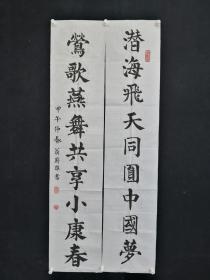 潛海飛天同圓中國夢
鶯歌燕舞共享小康春
甲午仲春